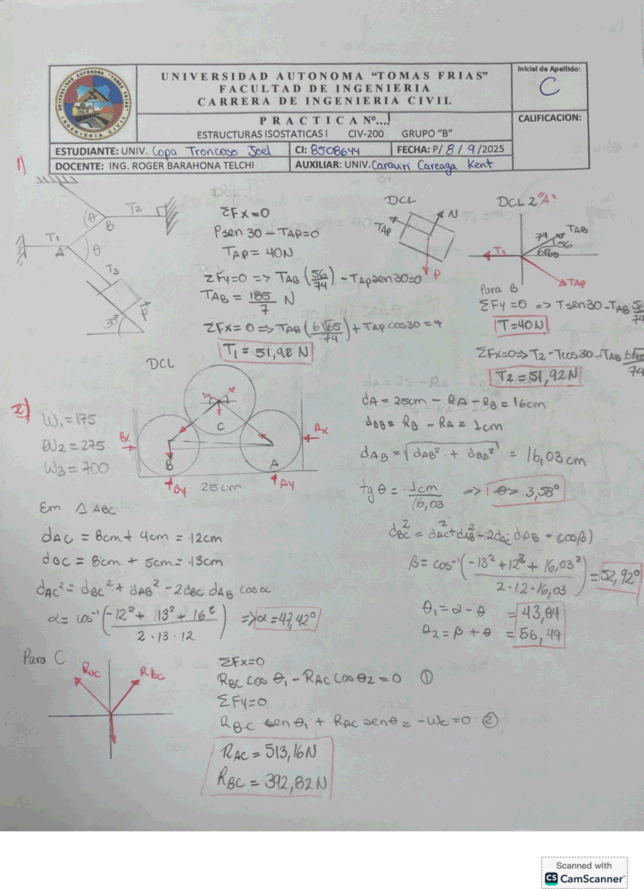 UNIVERSIDAD AUTONOMA "TOMAS FRIAS"
FACULTAD DE INGENIERIA
CARRERA DE INGENIERIA CIVIL
Inicial de Apellido:
C
P R A C T I C A Nº...1
ESTRUCTURAS ISOSTATICAS I CIV-200 GRUPO "B"
CALIFICACION:
ESTUDIANTE: UNIV. Copa Troncoso Joel CI: 8508644 FECHA: P/ 8 / 9 /2025
DOCENTE: ING. ROGER BARAHONA TELCHI AUXILIAR: UNIV. Carquiri Careaga Kent
1)
θ B T2
T1 A θ
T3
P
30
ΣFx=0
P sen 30 - TAP=0
TAP= 40N
ΣFy=0 => TAB (56/74) - TAP sen 30=0
TAB = 185/7 N
ΣFx=0 => TAB (6√65/74) + TAP cos 30 = T
T1 = 51,92 N
DCL
N
TAP
P
DCL 2 "A"
74 TAB
56
6√65
T1
TAP
Para B
ΣFy=0 => T sen 30 - TAB 56/74
T=40N
ΣFx=0 => T2 - T cos 30 - TAB 6√65/74
T2 = 51,92 N
2)
W1 = 175
W2 = 275
W3 = 700
DCL
C
Bx B A Ax
By 25cm Ay
dA = 25cm - RA - RB = 16cm
dBB = RB - RA = 1cm
dAB = √(dAB² + dBB²) = 16,03 cm
tg θ = 1cm/16,03 => θ= 3,58º
Em Δ ABC
dAC = 8cm + 4cm = 12cm
dBC = 8cm + 5cm = 13cm
dAC² = dBC² + dAB² - 2dBC dAB cos α
α = cos⁻¹ (-12² + 13² + 16²/2·13·12) => α = 47,42º
dBC² = dAC² + dAB² - 2dAC dAB - cos β)
β = cos⁻¹ (-13² + 12² + 16,03²/2·12·16,03) = 52,92º
θ1 = α - θ = 43,84
θ2 = β + θ = 56,49
Para C
RAC RBC
ΣFx=0
RBC cos θ1 - RAC cos θ2 = 0 ①
ΣFy=0
RBC sen θ1 + RAC sen θ2 - Wc = 0 ②
RAC = 513,16 N
RBC = 392,82 N
Scanned with
CS CamScanner